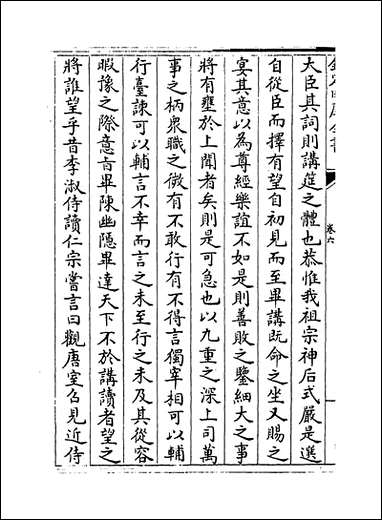 欽定四庫全書
卷六
大臣其詞則講筵之體也恭惟我祖宗神后式嚴是選
自從臣而擇有望自初見而至畢講既命之坐又賜之
宴其意以為尊經樂誼不如是則善敗之鑒細大之事
將有壅於上聞者矣則是可急也以九重之深上司萬
事之柄衆職之微有不敢行有不得言獨宰相可以輔
行臺諫可以輔言不幸而言之未至行之未及其從容
暇豫之際意旨畢陳幽隱畢達天下不於講讀者望之
將誰望乎昔李淑侍讀仁宗嘗言曰觀唐室召見近侍